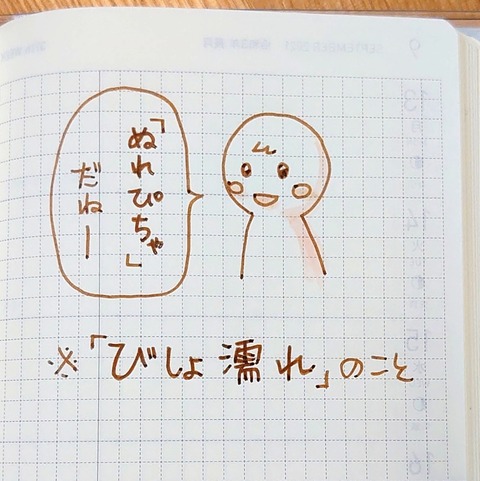 「ぬれぴちゃ」
だねー
※「びしょ濡れ」のこと